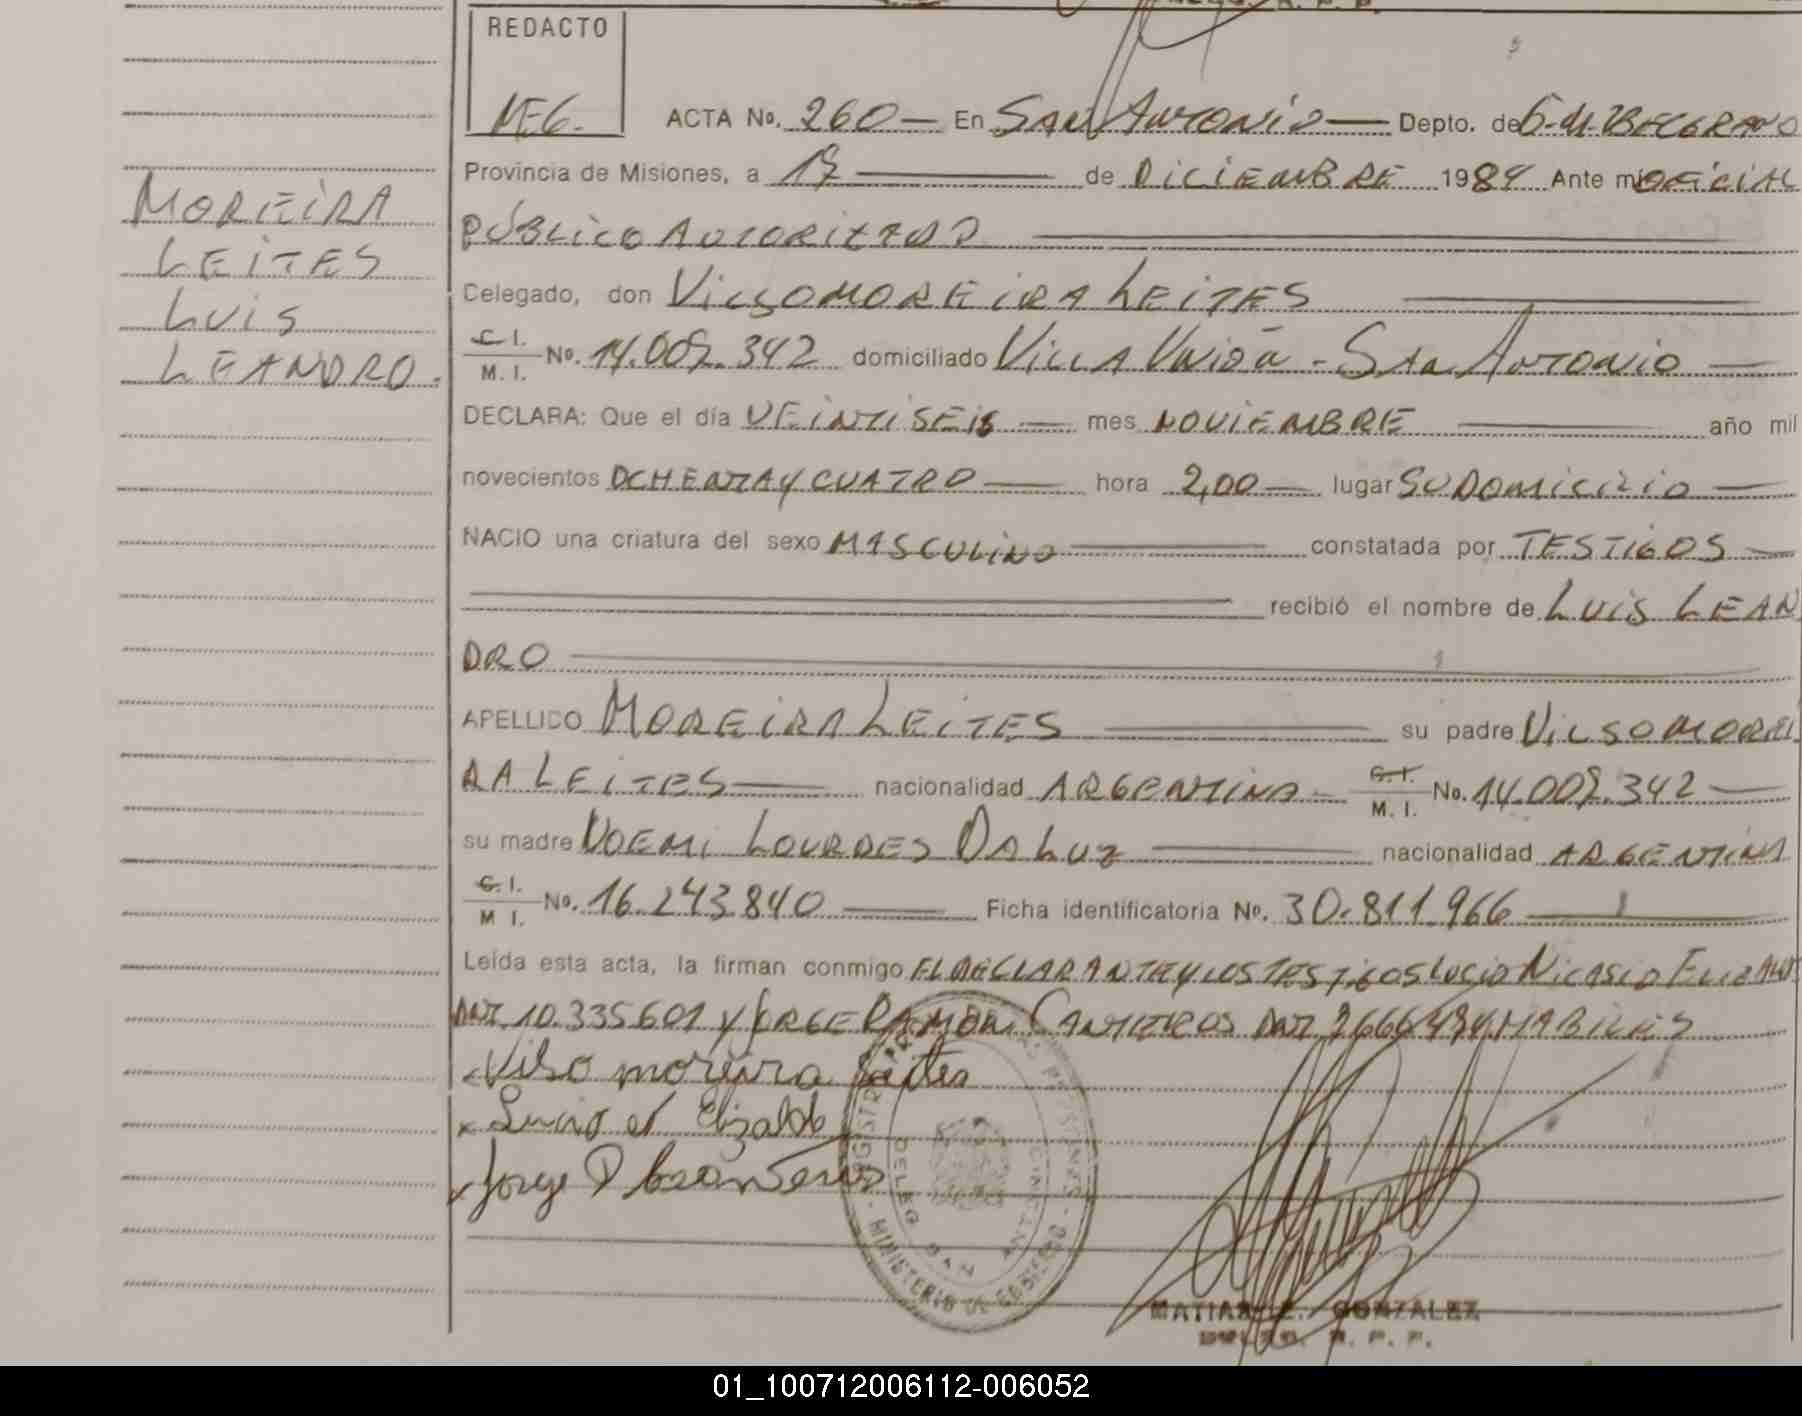 REDACTO
ACTA No. 260 — En SAN ANTONIO — Depto. de G-M-BELGRANO
Provincia de Misiones, a 17 — de DICIEMBRE 1984 Ante mi OFICIAL
PÚBLICO AUTORIZADO
Celegado, don VILSO MOREIRA LEITES
C.I. M.I. No. 14.009.342 domiciliado VILLA UNIÓN - SAN ANTONIO —
DECLARA: Que el día VEINTISEIS — mes NOVIEMBRE — año mil
novecientos OCHENTA Y CUATRO — hora 2,00 — lugar SU DOMICILIO —
NACIO una criatura del sexo MASCULINO — constatada por TESTIGOS —
recibió el nombre de LUIS LEAN
DRO
APELLIDO MOREIRA LEITES — su padre VILSO MOREI
RA LEITES — nacionalidad ARGENTINA — C.I. M.I. No. 14.009.342 —
su madre NOEMI LOURDES DA LUZ — nacionalidad ARGENTINA
C.I. M.I. No. 16.243.840 — Ficha identificatoria No. 30.811.966 —
Leída esta acta, la firman conmigo EL DECLARANTE Y LOS TESTIGOS LUCIO NICASIO ELIZALDE
DNI 10.335601 Y JORGE RAMON CANTEROS DNI HABILES
Vilso moreira Leites
Lucio N Elizalde
Jorge R Canteros
MOREIRA
LEITES
LUIS
LEANDRO.
MINISTERIO DE GOBIERNO
MATIAS E. GONZALEZ
DELEG. R. P. P.
01_100712006112-006052